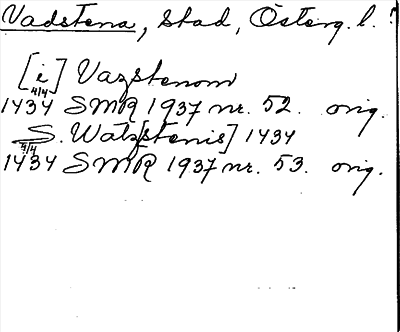 Vadstena, Stad, Österg. l.
[i] Vazstenom
4/4
1434 SMR 1937 nr. 52. orig.
S. Watz[stenis] 1434
4/4
1434 SMR 1937 nr. 53. orig.